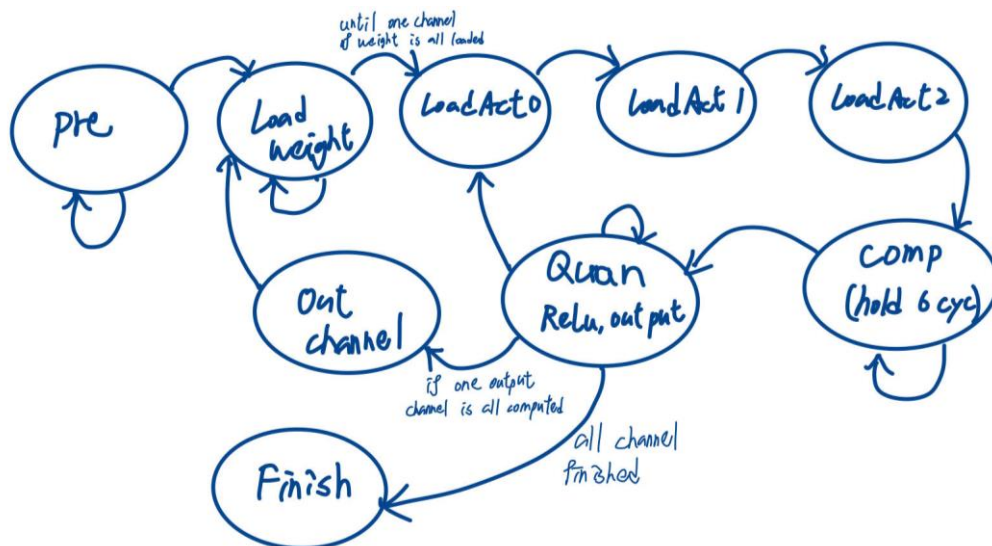 until one channel
if weight is all loaded
Pre
Load
weight
LoadAct0
LoadAct1
LoadAct2
Comp
(hold 6 cyc)
Quan
Relu, output
Out
channel
if one output
channel is all computed
all channel
finished
Finish